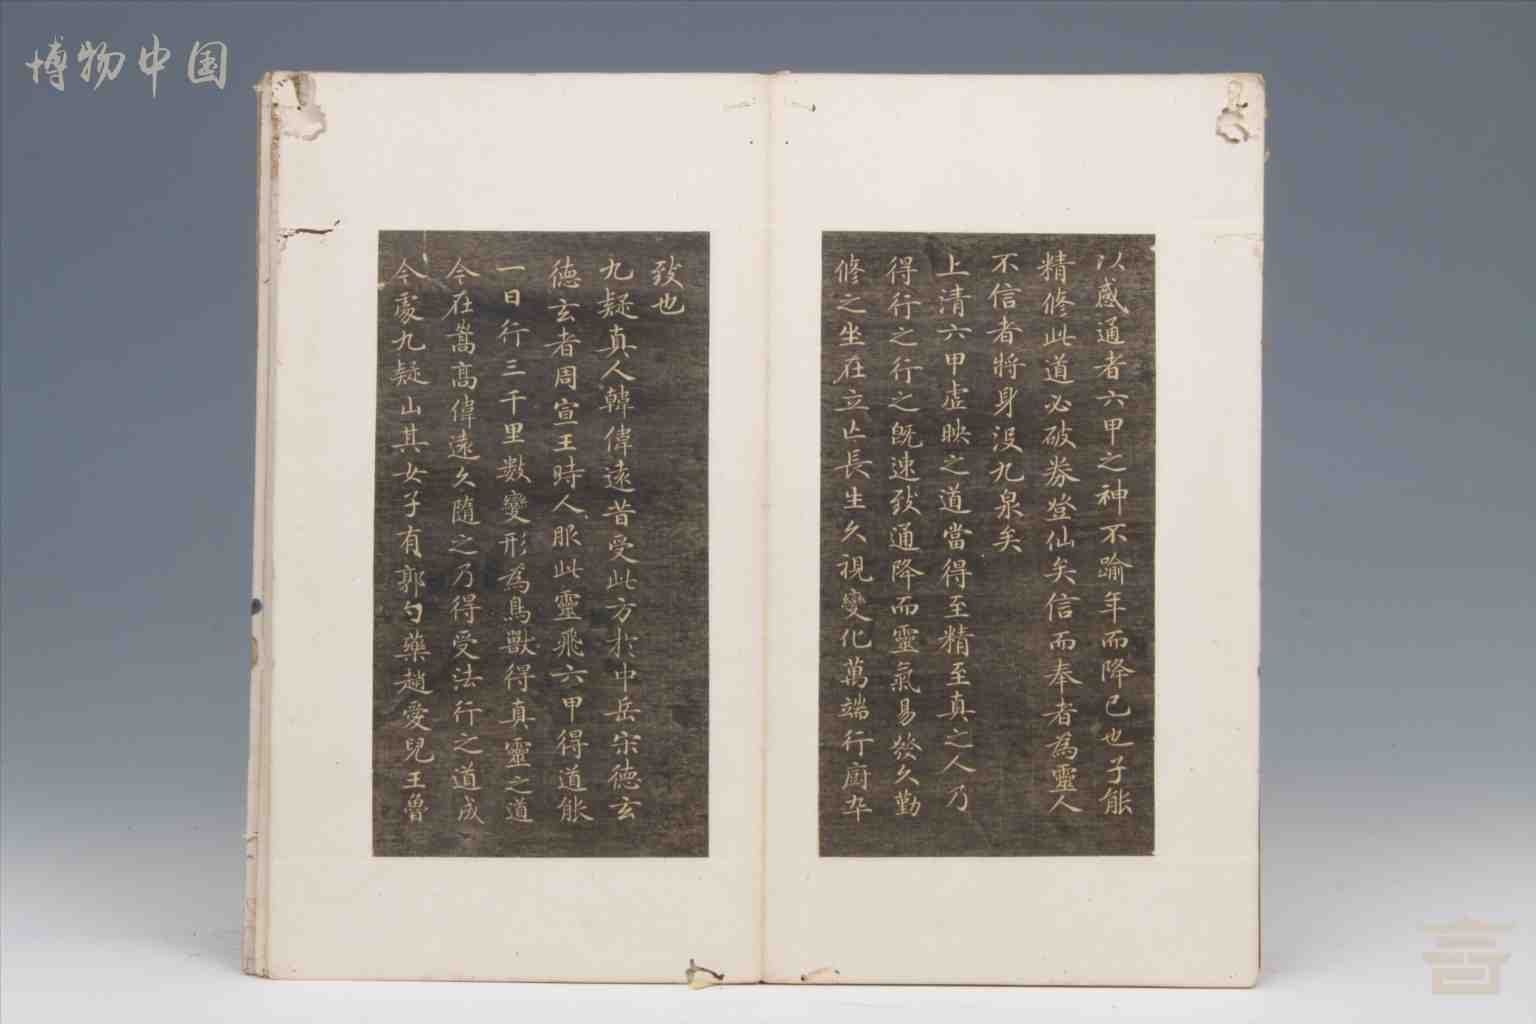 博物中国
以感通者六甲之神不踰年而降已也子能
精修此道必破券登仙矣信而奉者為靈人
不信者將身没九泉矣
上清六甲虚映之道當得至精至真之人乃
得行之行之既速致通降而靈氣易發久勤
修之坐在立亡長生久視變化萬端行廚卒
致也
九疑真人韓偉遠昔受此方於中岳宋德玄
德玄者周宣王時人服此靈飛六甲得道能
一日行三千里數變形為鳥獸得真靈之道
今在嵩高偉遠久隨之乃得受法行之道成
今處九疑山其女子有郭勺藥趙愛兒王魯